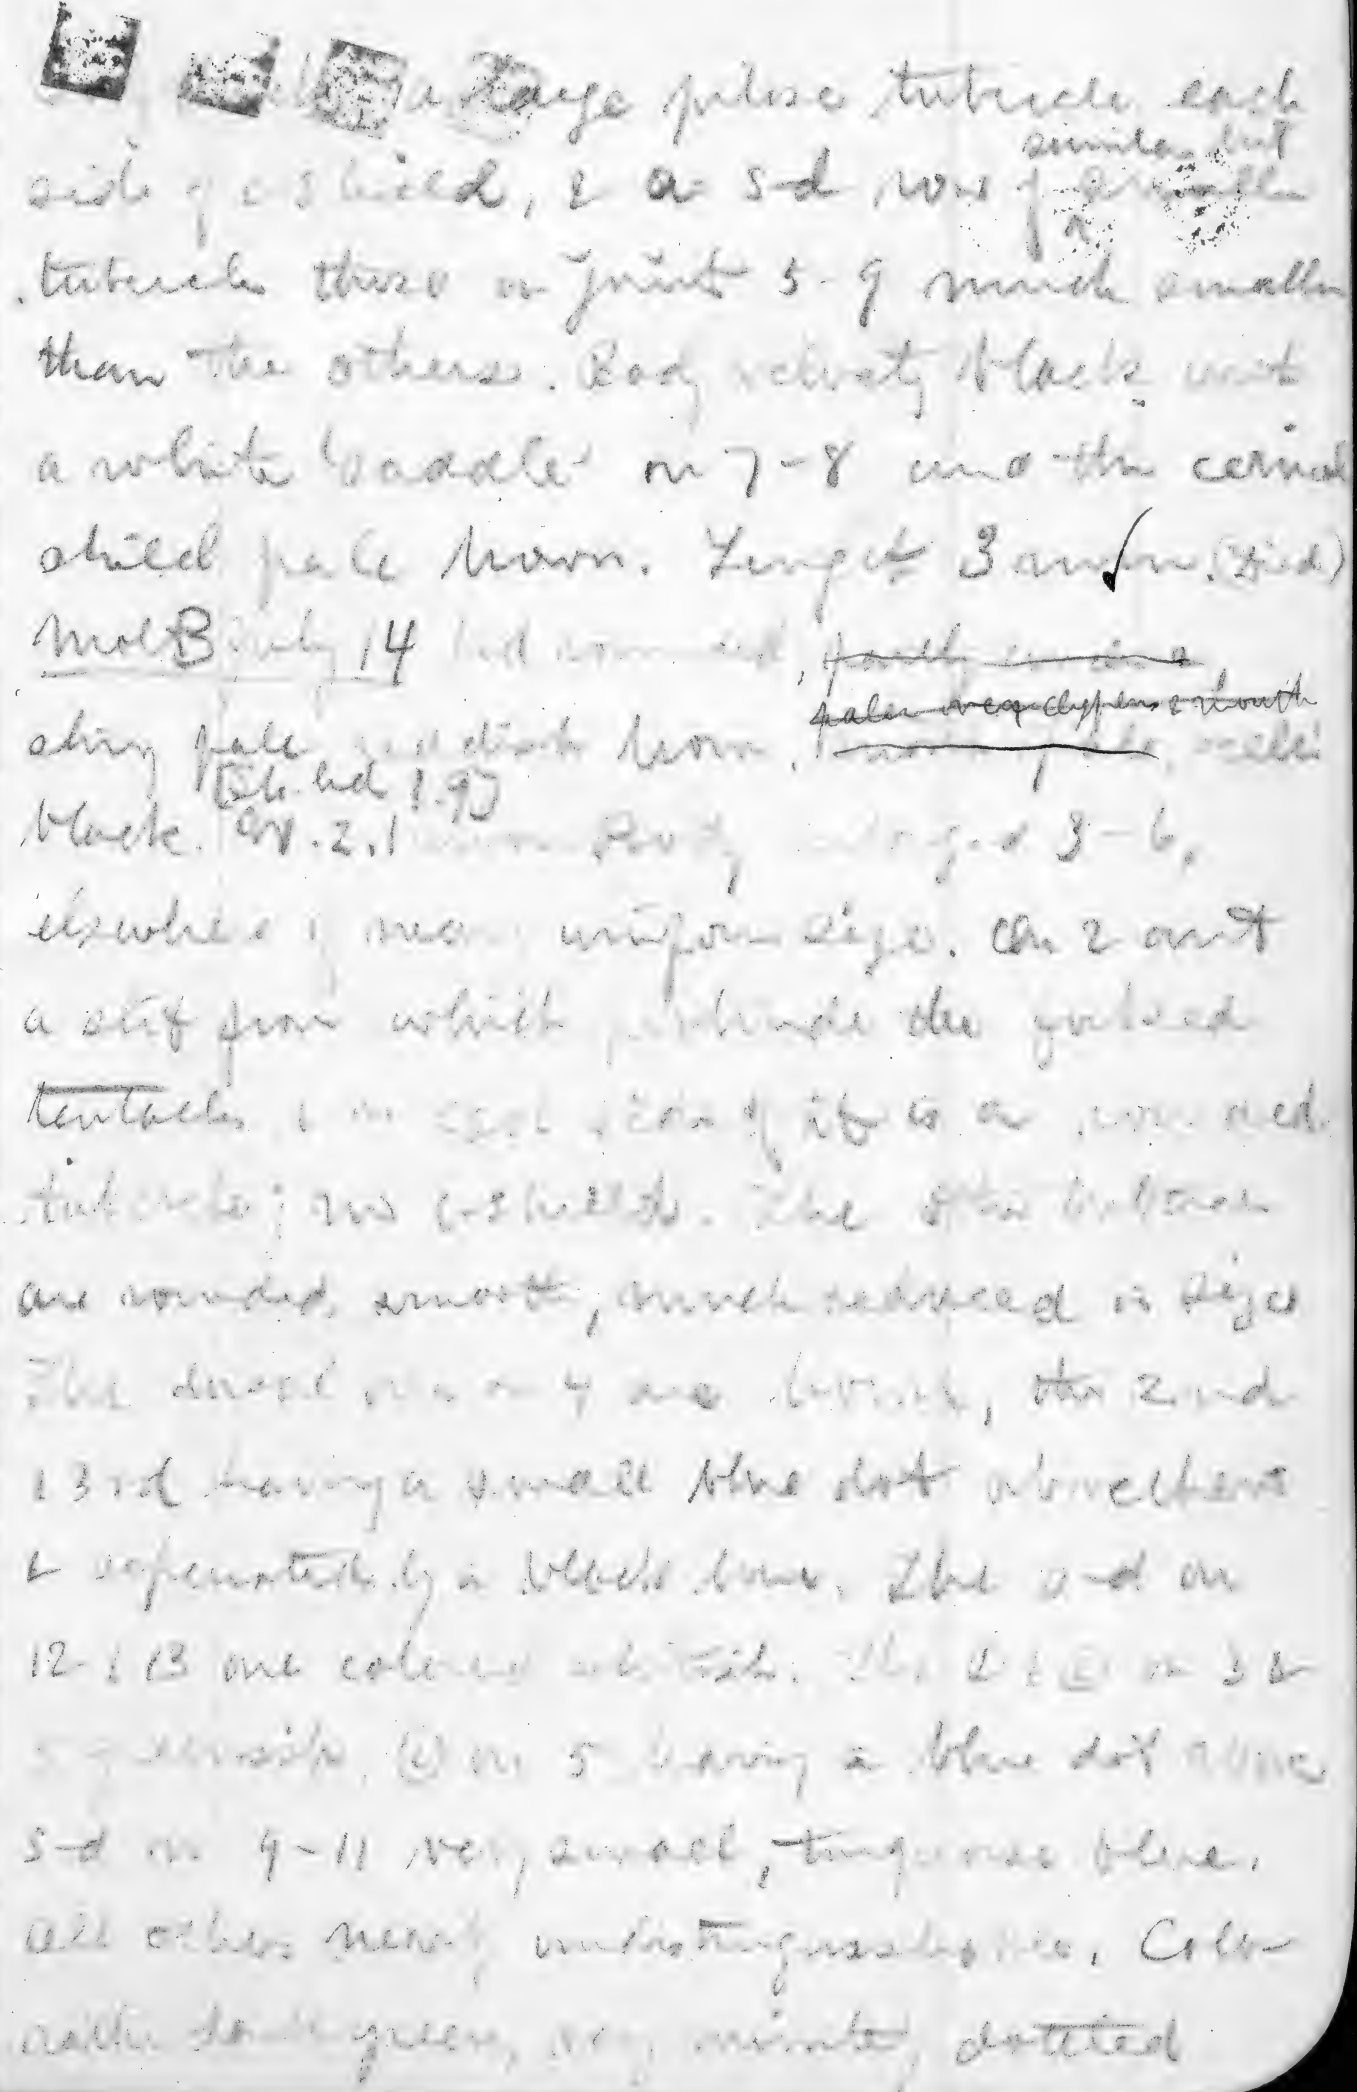 a large pilose tubercle each
side of c-shield, & a s-d row of similar but smaller
tubercles those on joint 5-9 much smaller
than the others. Body velvety black with
a white saddle on 7-8 and the cervical
shield pale brown. Length 3 mm. (Died)
Molt B July 14 hd rounded,
shiny pale reddish brown, paler over clypeus & mouth ocelli
black. W. 2.1 mm Body enlarged 3-6,
elsewhere of near uniform size. On 2 ant
a slit from which protrude the forked
tentacles & on each side of it is a rounded
tubercle; no c-shield. The other tubercles
are rounded smooth, much reduced in size
The dorsal on 4 are brown, the 2nd
& 3rd having a small blue dot above them
& separated by a black line. The s-d on
12 & 13 are colored whitish. on 3 &
on 5 having a blue dot above
s-d on 9-11 very small, turquoise blue.
all others nearly undistinguishable. Color
rather dark green, very minutely dotted